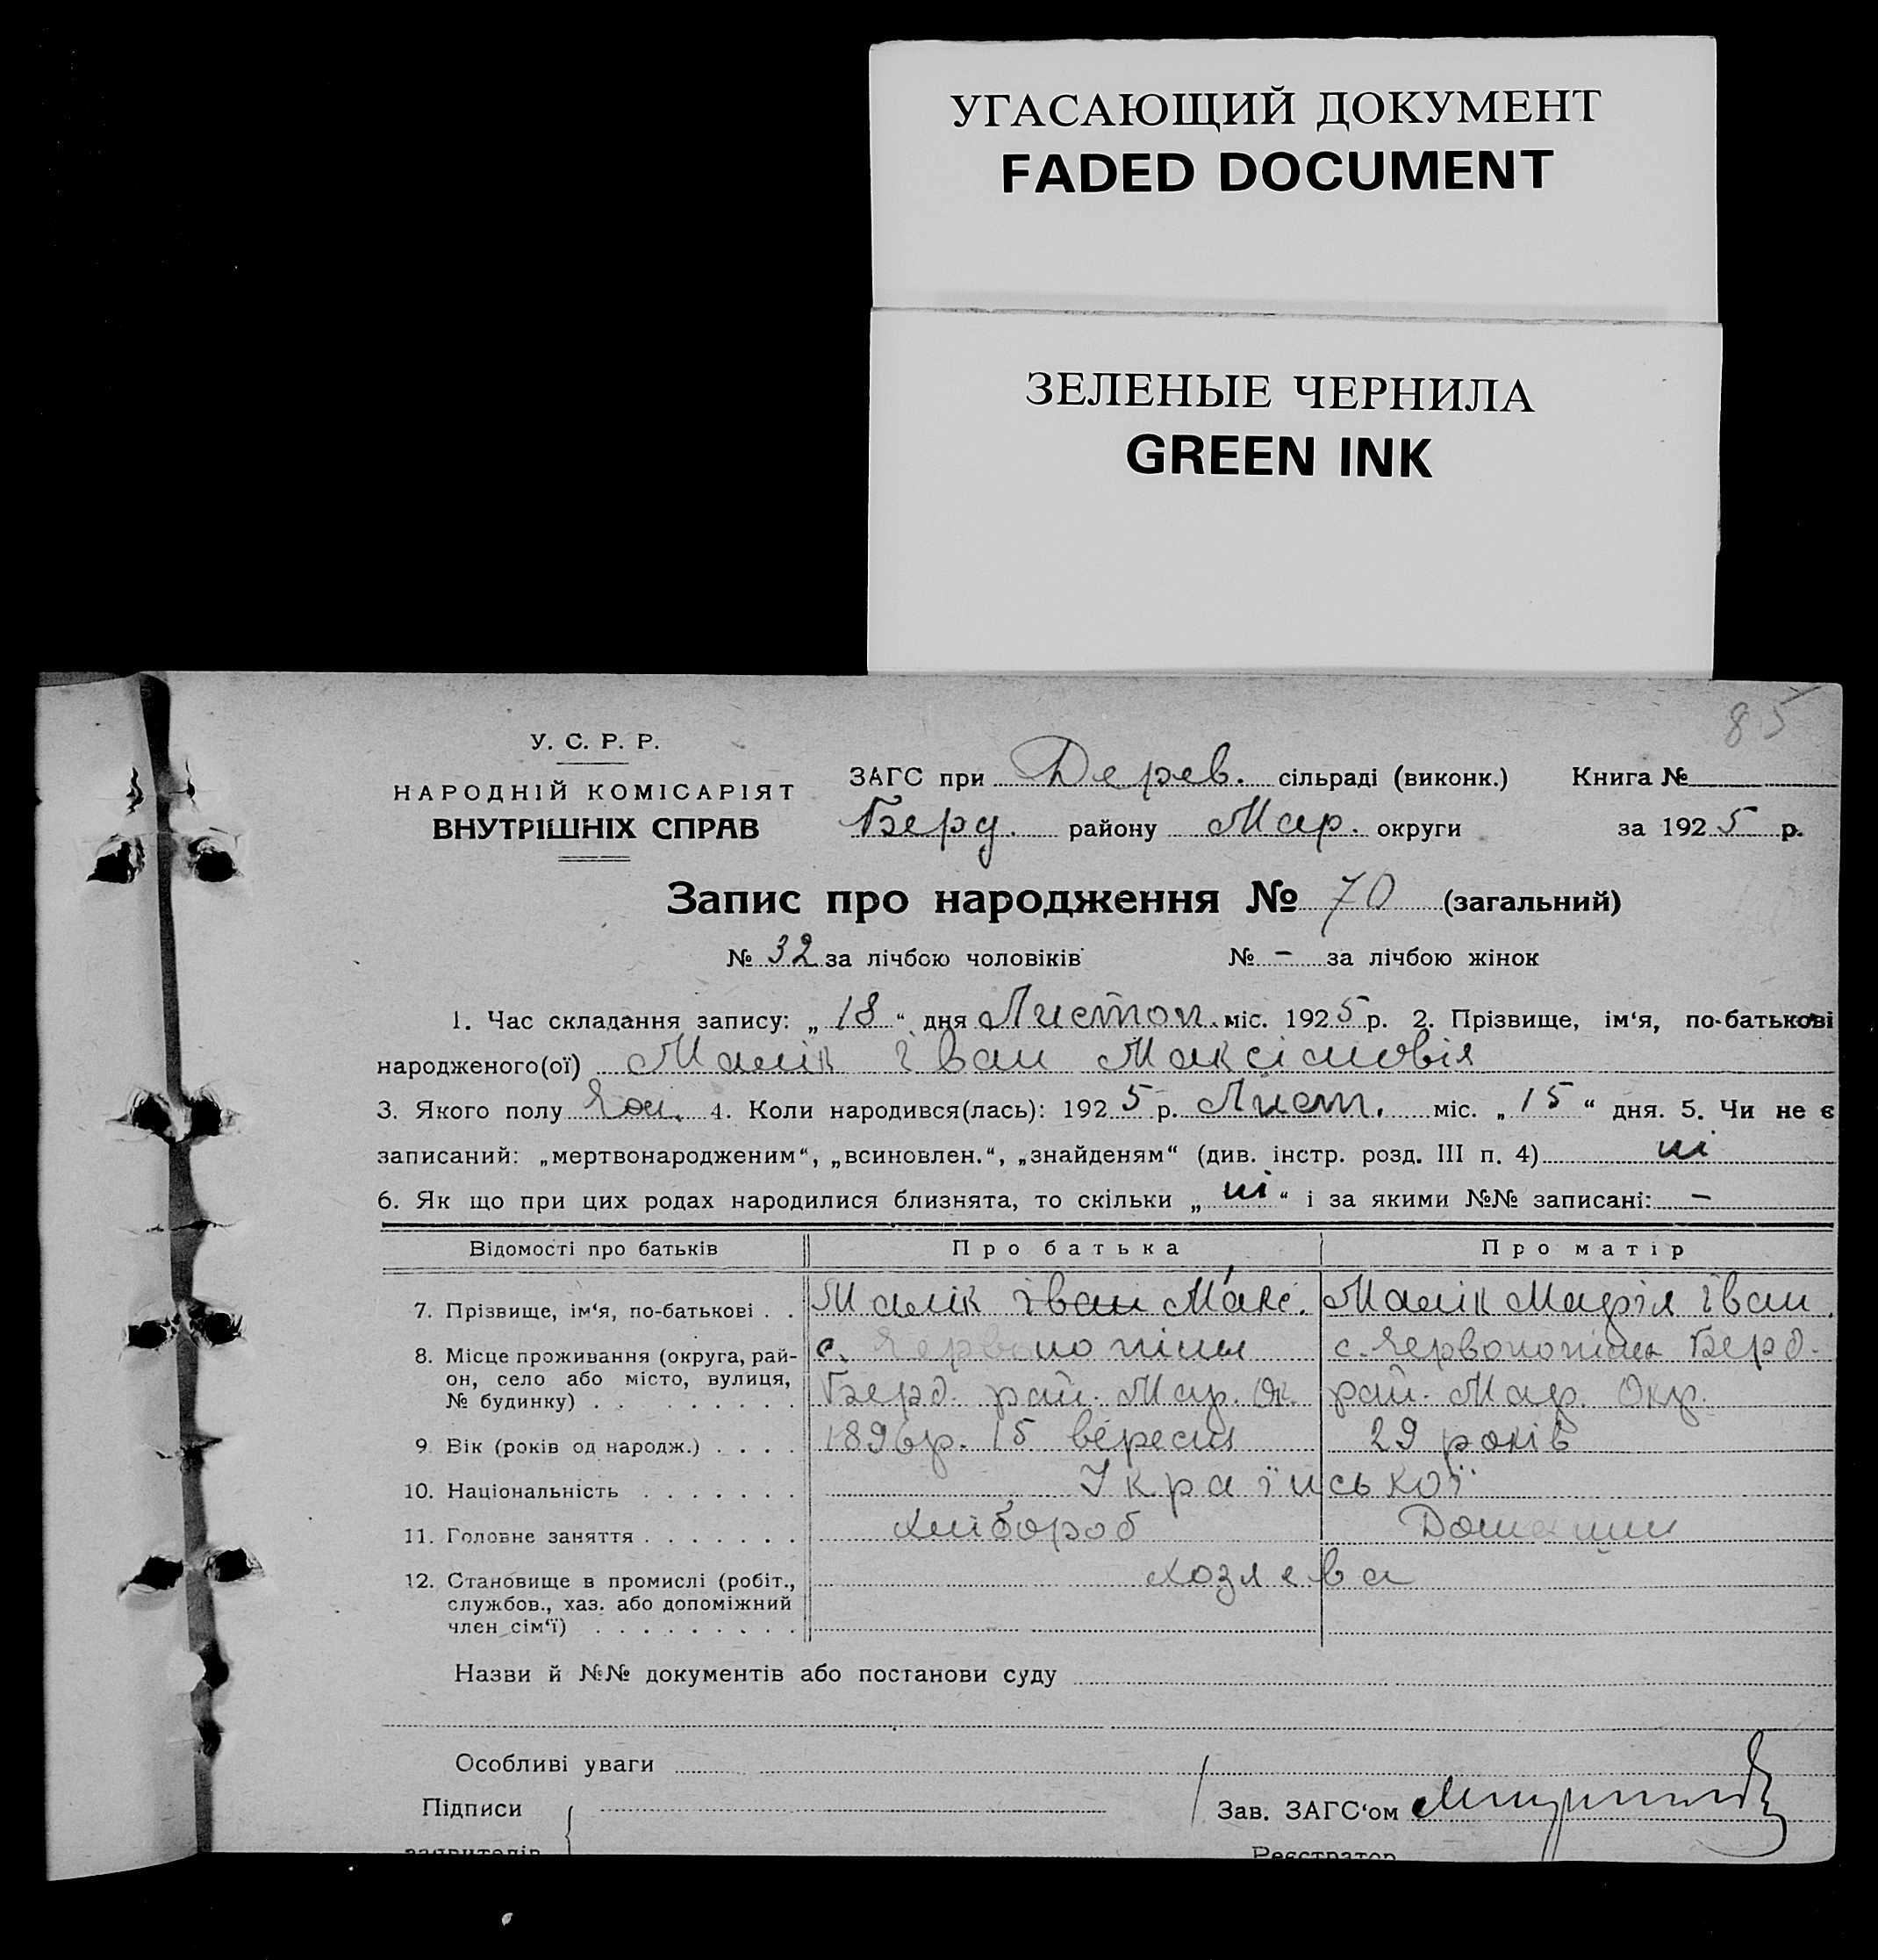 УГАСАЮЩИЙ ДОКУМЕНТ
FADED DOCUMENT
ЗЕЛЕНЫЕ ЧЕРНИЛА
GREEN INK
85
У. С. Р. Р.
НАРОДНІЙ КОМІСАРІЯТ
ВНУТРІШНІХ СПРАВ
ЗАГС при Дерев. сільраді (виконк.) Книга №
Берд. району Мар. округи за 1925 р.
Запис про народження № 70 (загальний)
№ 32 за лічбою чоловіків № - за лічбою жінок
1. Час складання запису: „18“ дня Листоп. міс. 1925 р. 2. Прізвище, ім‘я, по-батькові
народженого(ої) Малік Іван Максімовія
3. Якого полу Чол. 4. Коли народився(лась): 1925 р. Лист. міс. „15“ дня. 5. Чи не є
записаний: „мертвонародженим“, „всиновлен.“, „знайденям“ (див. інстр. розд. III п. 4) ні
6. Як що при цих родах народилися близнята, то скільки „ні“ і за якими №№ записані: -
Відомості про батьків Про батька Про матір
7. Прізвище, ім‘я, по-батькові . . Малік Іван Макс. Малік Марія Іван.
8. Місце проживання (округа, рай- с. Червонопілля с. Червонопілля Берд.
он, село або місто, вулиця, Берд. рай. Мар. Ок. рай. Мар. Окр.
№ будинку) . . . . . . . . .
9. Вік (років од народж.) . . . . 1896р. 15 вересня 29 років
10. Національність . . . . . . . Української
11. Головне заняття . . . . . . . хлібороб Домашни
12. Становище в промислі (робіт., хозяева
службов., хаз. або допоміжний
член сім‘ї) . . . . . . . . .
Назви й №№ документів або постанови суду
Особливі уваги
Підписи Зав. ЗАГС‘ом
заявителів Реєстратор